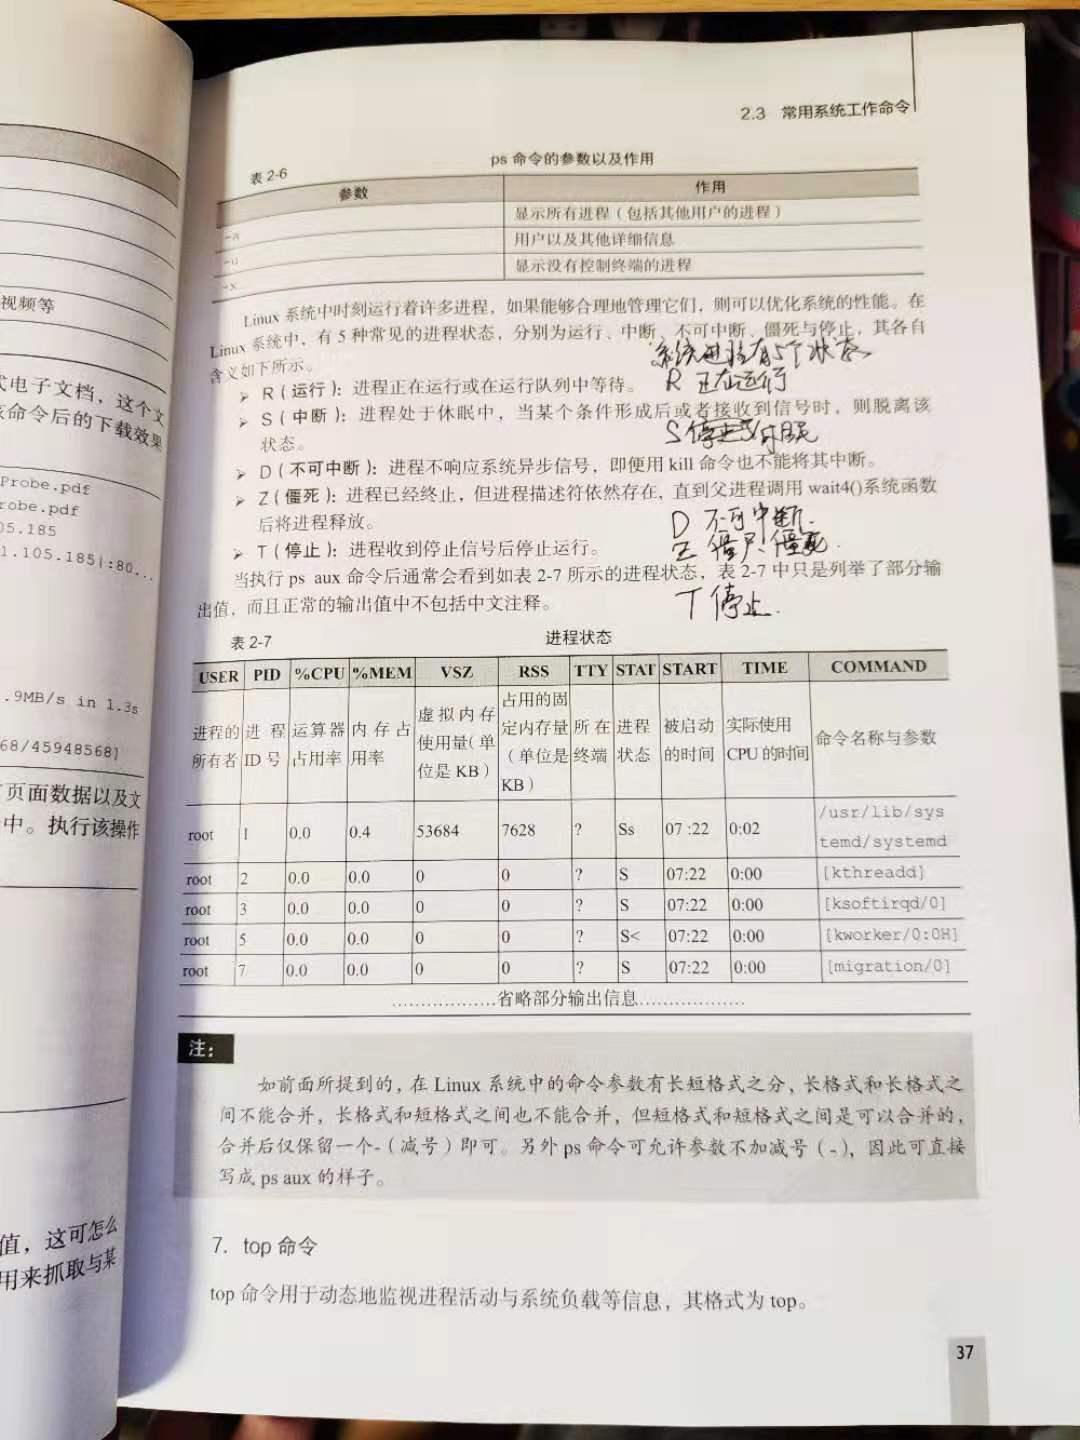 视频等
式电子文档，这个文
该命令后的下载效果
Probe.pdf
robe.pdf
05.185
1.105.185|:80...
.9MB/s in 1.3s
68/45948568]
页面数据以及文
中。执行该操作
值，这可怎么
用来抓取与某
2.3 常用系统工作命令
表 2-6 ps 命令的参数以及作用
参数 作用
-a 显示所有进程（包括其他用户的进程）
-u 用户以及其他详细信息
-x 显示没有控制终端的进程
Linux 系统中时刻运行着许多进程，如果能够合理地管理它们，则可以优化系统的性能。在
Linux 系统中，有 5 种常见的进程状态，分别为运行、中断、不可中断、僵死与停止，其各自
含义如下所示。
系统进程有5个状态
➢ R（运行）：进程正在运行或在运行队列中等待。
R 正在运行
➢ S（中断）：进程处于休眠中，当某个条件形成后或者接收到信号时，则脱离该
状态。
S 停止
➢ D（不可中断）：进程不响应系统异步信号，即便用 kill 命令也不能将其中断。
➢ Z（僵死）：进程已经终止，但进程描述符依然存在，直到父进程调用 wait4()系统函数
后将进程释放。
D 不可中断.
➢ T（停止）：进程收到停止信号后停止运行。
Z 僵尸、僵死.
当执行 ps aux 命令后通常会看到如表 2-7 所示的进程状态，表 2-7 中只是列举了部分输
出值，而且正常的输出值中不包括中文注释。
T 停止.
表 2-7 进程状态
USER PID %CPU %MEM VSZ RSS TTY STAT START TIME COMMAND
进程的所有者 进程ID 号 运算器占用率 内存占用率 虚拟内存使用量（单位是 KB） 占用的固定内存量（单位是KB） 所在终端 进程状态 被启动的时间 实际使用CPU 的时间 命令名称与参数
root 1 0.0 0.4 53684 7628 ? Ss 07 :22 0:02 /usr/lib/systemd/systemd
root 2 0.0 0.0 0 0 ? S 07:22 0:00 [kthreadd]
root 3 0.0 0.0 0 0 ? S 07:22 0:00 [ksoftirqd/0]
root 5 0.0 0.0 0 0 ? S< 07:22 0:00 [kworker/0:0H]
root 7 0.0 0.0 0 0 ? S 07:22 0:00 [migration/0]
………………省略部分输出信息………………
注：
如前面所提到的，在 Linux 系统中的命令参数有长短格式之分，长格式和长格式之
间不能合并，长格式和短格式之间也不能合并，但短格式和短格式之间是可以合并的，
合并后仅保留一个-（减号）即可。另外 ps 命令可允许参数不加减号（-），因此可直接
写成 ps aux 的样子。
7. top 命令
top 命令用于动态地监视进程活动与系统负载等信息，其格式为 top。
37